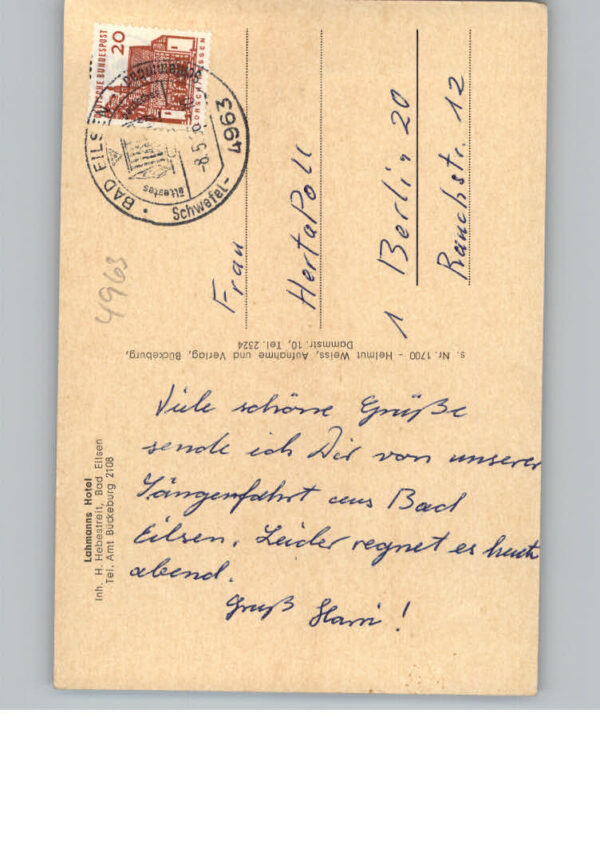 Viele schöne Grüße
sende ich Dir von unserer
Sängerfahrt aus Bad
Eilsen. Leider regnet es heute
abend.
Gruß Harri!
Frau
Herta Poll
1 Berlin 20
Rauchstr. 12
Lahmanns Hotel
Inh. H. Hebestreit, Bad Eilsen
Tel. Amt Bückeburg 2108
s. Nr. 1700 - Helmut Weiss, Aufnahme und Verlag, Bückeburg,
Dammstr. 10, Tel. 2324
4963
DEUTSCHE BUNDESPOST
20
LORSCH HESSEN
4963 BAD EILSEN
-8.5.
ältestes
Schwefel-